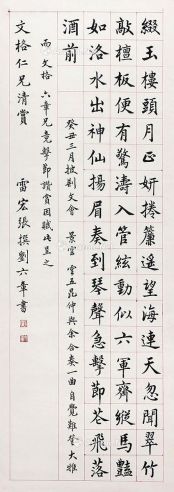 綴玉樓頭月正妍捲簾遥望海連天忽聞翠竹
敲檀板便有驚濤入管絃動似六軍齊縱馬豔
如洛水出神仙揚眉奏到琴聲急擊節苍飛落
酒前
癸丑三月披剥文會 景雲 堂五昆仲與余合奏一曲自覺難登大雅
而文格 六章兄竟擊節讚賞因賦此呈之
文格仁兄清賞 雷宏張撰劉六章書